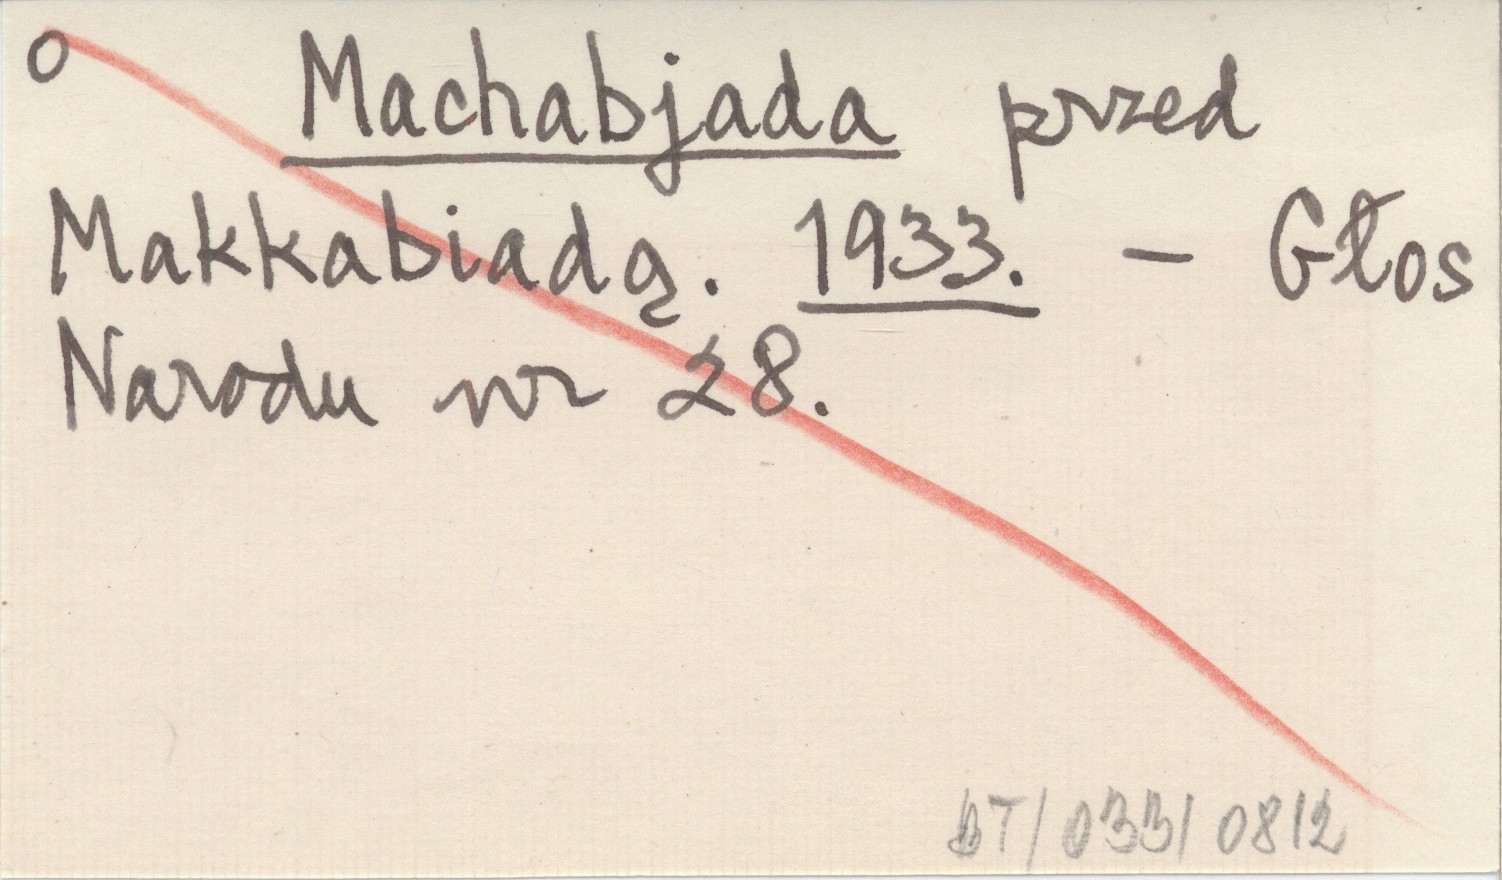 o Machabjada przed
Makkabiadą. 1933. - Głos
Narodu nr 28.
BT/033/0812